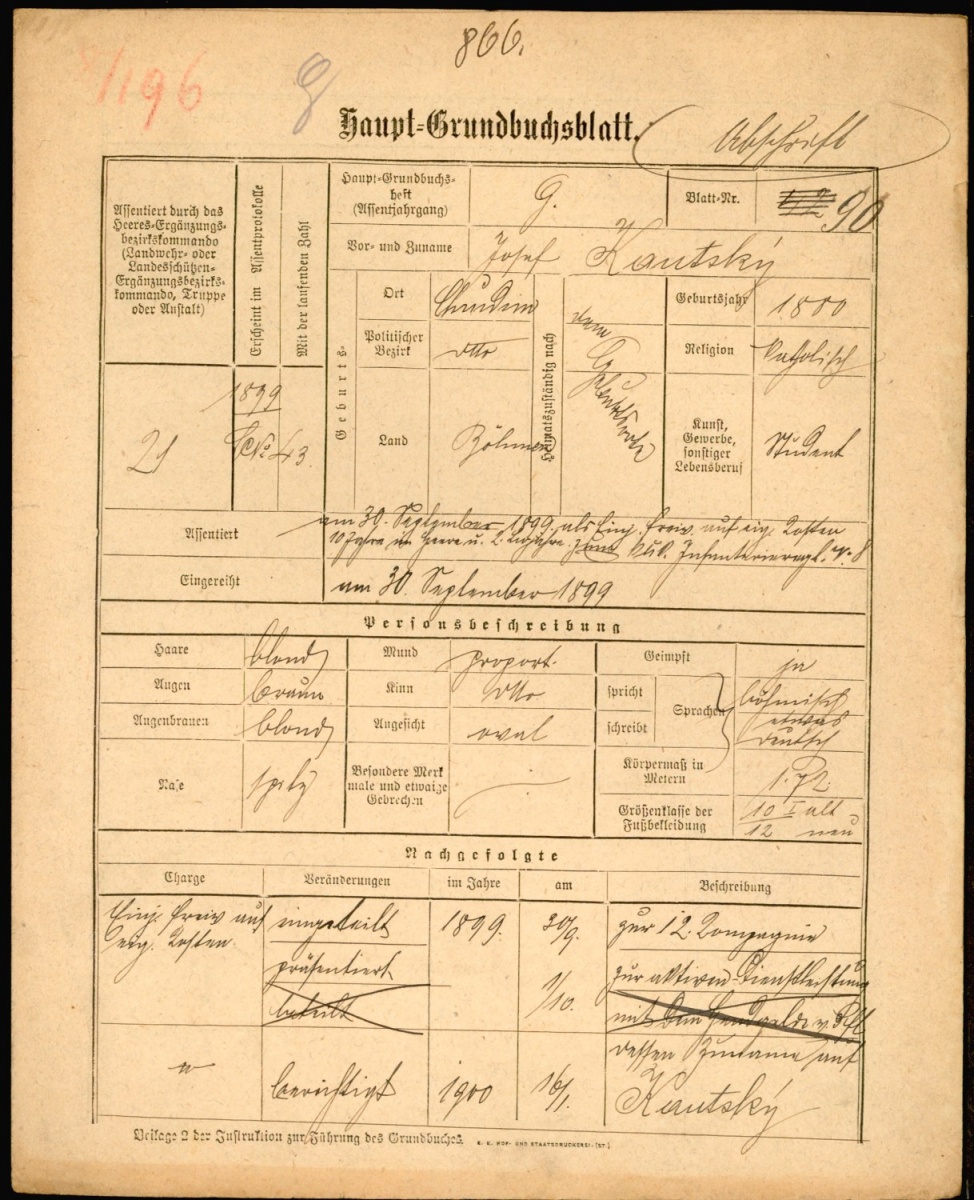 866.
1196
g
Haupt-Grundbuchsblatt.
Abschrift
Assentiert durch das
Heeres-Ergänzungs-
bezirkskommando
(Landwehr- oder
Landesschützen-
Ergänzungsbezirks-
kommando, Truppe
oder Anstalt)
Erscheint im Assentprotokolle
Mit der laufenden Zahl
Haupt-Grundbuchs-
heft
(Assentjahrgang)
G.
Blatt-Nr.
90
Vor- und Zuname
Josef Kautský
Geburts-
Ort
Chrudim
Politischer
Bezirk
dtto
Land
Böhmen
Heimatszuständig nach
dem
Geburtsjahr
1880
Religion
katholisch
Kunst,
Gewerbe,
sonstiger
Lebensberuf
Student
21
1899
43
Assentiert
am 30. September 1899 als Einj. Freiw. auf eig. Kosten
10 Jahre im Heere u. 2 Ldwjahre zum k.u.k. Infanterieregt. Nr. 8
Eingereiht
am 30 September 1899
Personsbeschreibung
Haare
blond
Mund
proport.
Geimpft
ja
Augen
braun
Kinn
dtto
spricht
schreibt
Sprachen
böhmisch
etwas
deutsch
Augenbrauen
blond
Angesicht
oval
Nase
spitz
Besondere Merk
male und etwaige
Gebrechen
Körpermaß in
Metern
1.72.
Größenklasse der
Fußbekleidung
10 I alt
12 neu
Nachgefolgte
Charge
Veränderungen
im Jahre
am
Beschreibung
Einj. Freiw auf
eig. Kosten.
eingeteilt
1899.
30/9.
zur 12. Compagnie
präsentiert
1/10.
zur aktiven Dienstleistung
beteilt
mit dem Handgelde v.
dessen Zuname auf
berichtigt
1900
16/1.
Kautský
Beilage 2 der Instruktion zur Führung des Grundbuches.
K. K. HOF- UND STAATSDRUCKEREI. (ST.)